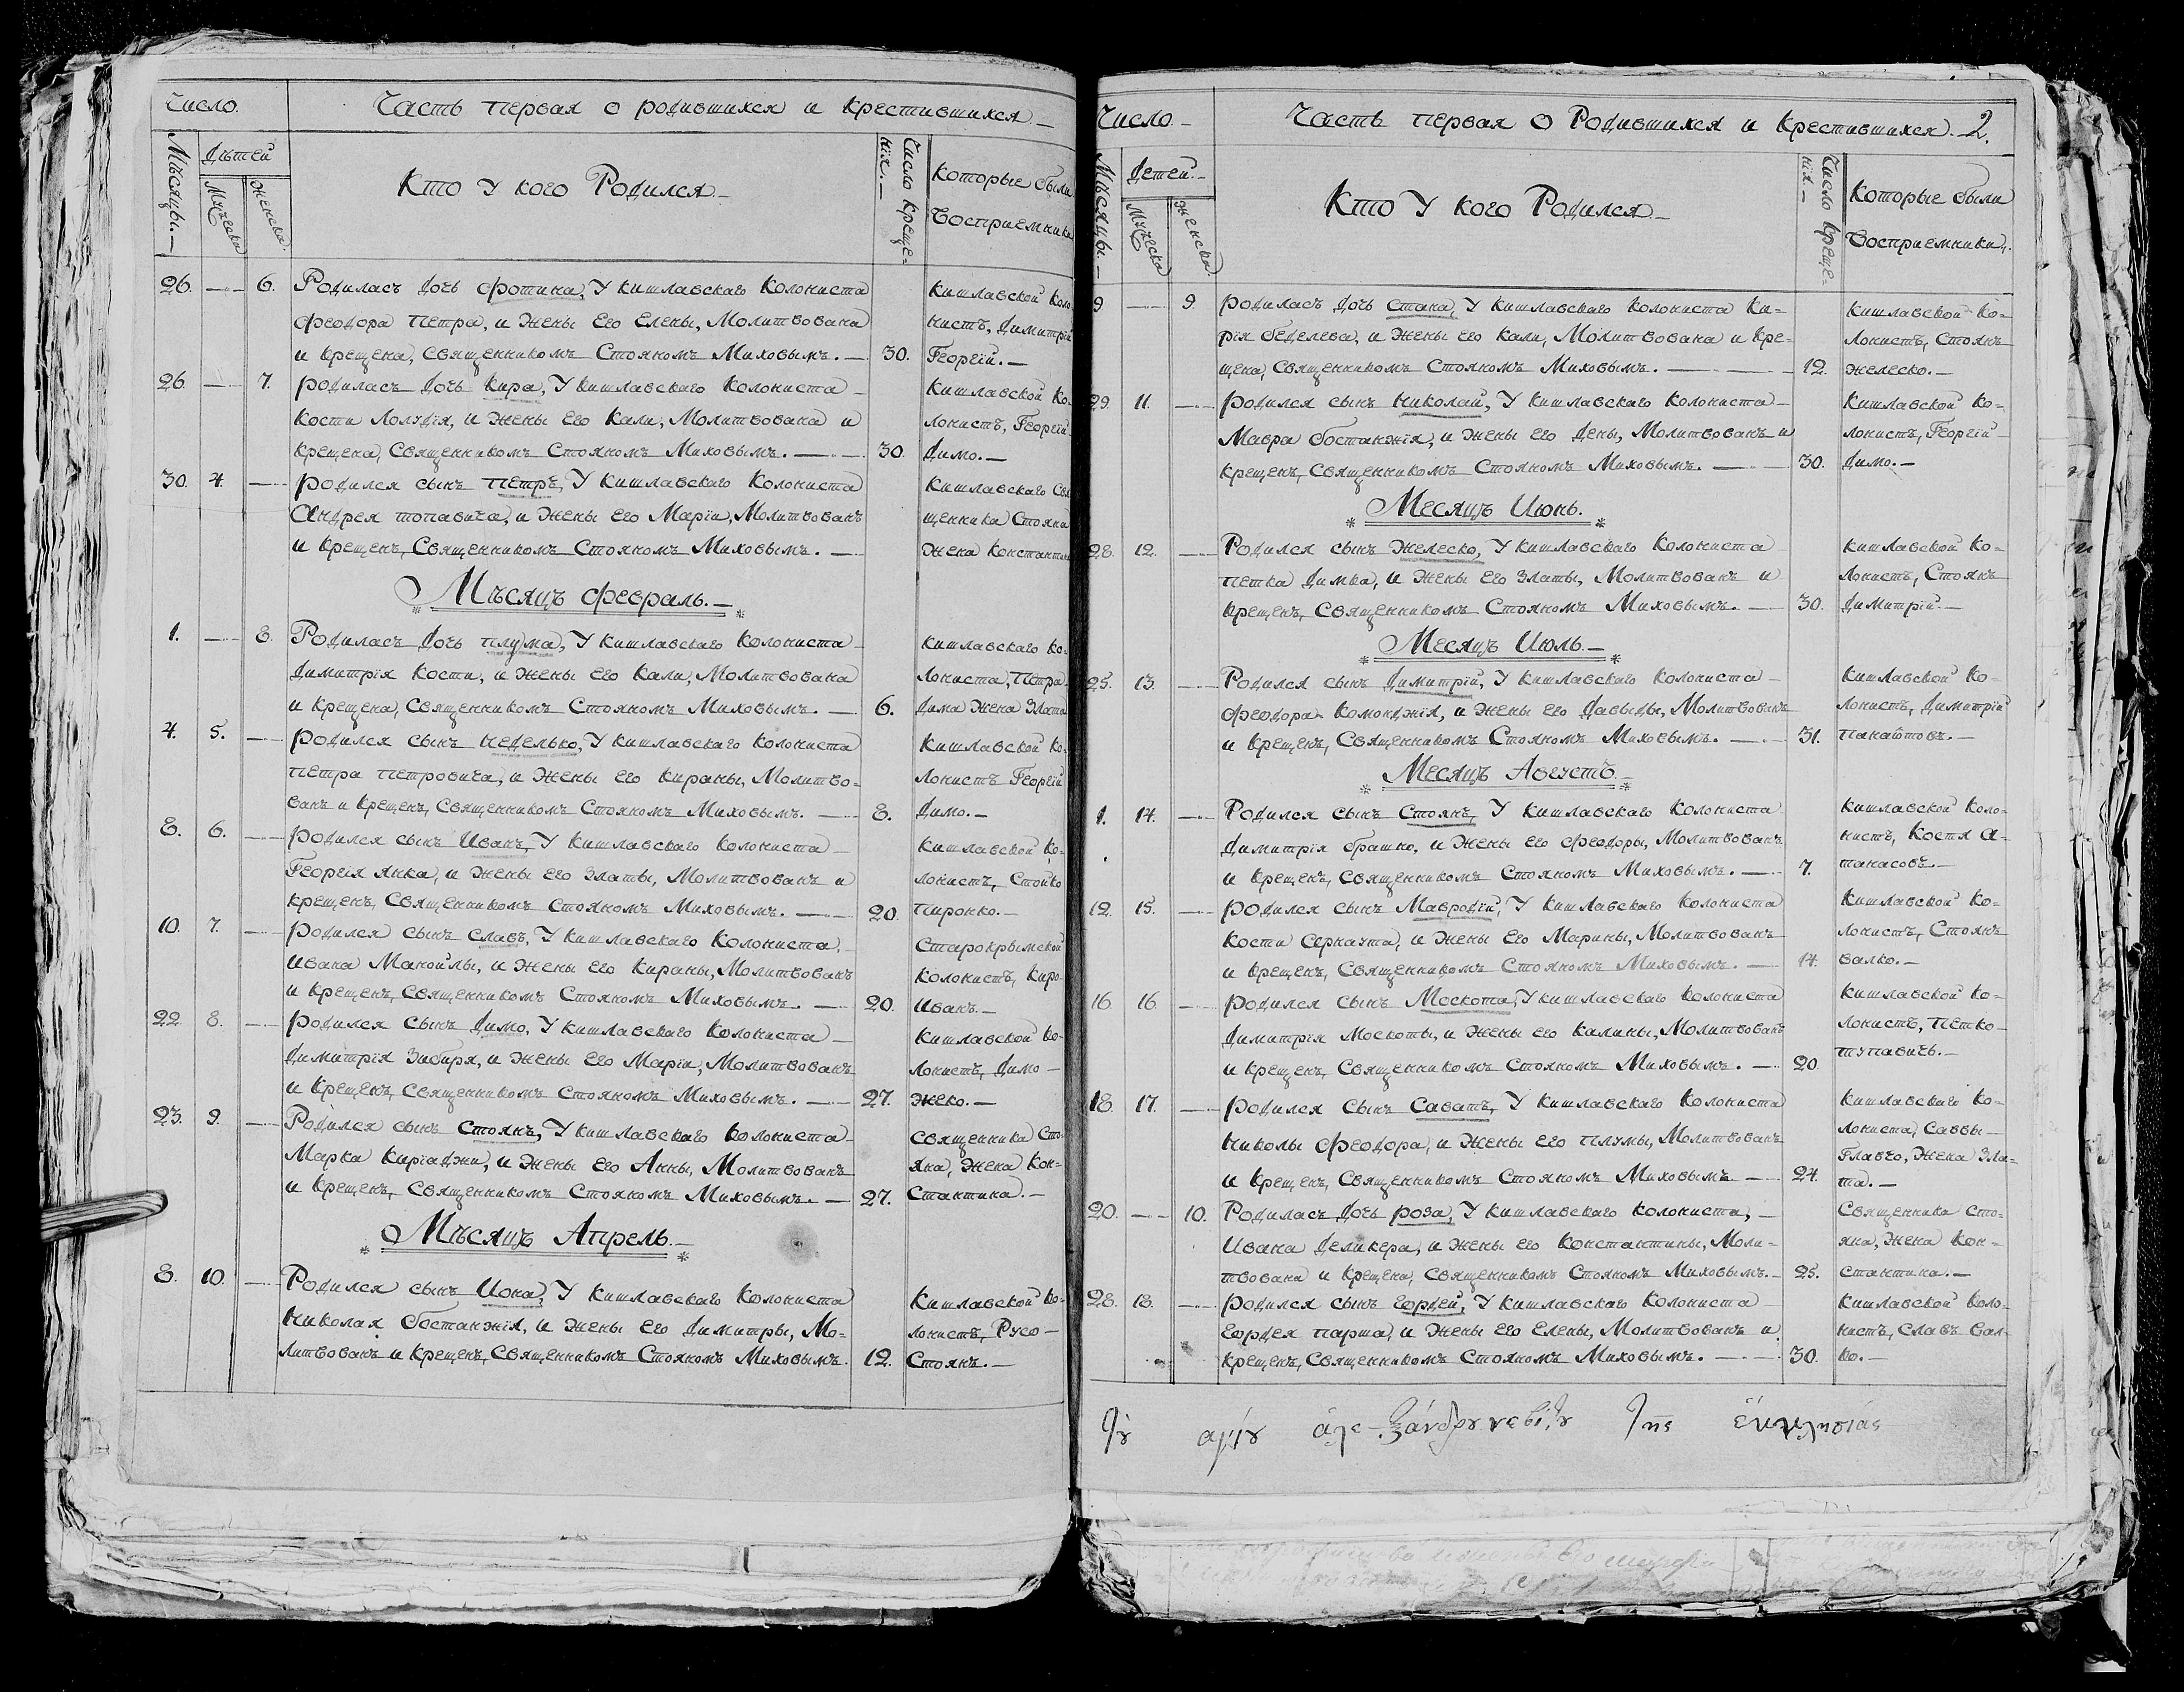 Число.
Часть первая о родившихся и крестившихся.—
Мѣсяцы.—
Дѣтей
Мужеска
Женска.
Кто У кого Родился.—
Число креще=
нія.—
Которые были
Восприемники
26. — 6. Родилась дочь Фотина, У кишлавскаго колониста
Феодора Петра, и жены его Елены, Молитвована
и крещена, священникомъ Стояномъ Миховымъ.— 30.
Кишлавской коло
нистъ, Димитрій
Георгій.—
26. — 7. родилась дочь Кира, У кишлавскаго колониста
Кости Лолудія, и жены его Кали, Молитвована и
крещена, Священникомъ Стояномъ Миховымъ.— 30.
Кишлавской ко=
лонистъ, Георгій
Димо.—
30. 4. — родился сынъ Петръ, У кишлавскаго колониста
Андрея топавича, и жены его Маріи, Молитвованъ
и крещенъ, Священникомъ Стояномъ Миховымъ.—
Кишлавскаго Свя
щенника Стояна
жена Константина
Мѣсяцъ Февраль.—
1. — 8. Родилась дочь плума, У кишлавскаго колониста
Димитрія Кости, и жены его Кали, Молитвована
и крещена, Священникомъ Стояномъ Миховымъ.— 6.
Кишлавскаго ко=
лониста, Петра
Дима жена Злата
4. 5. — родился сынъ Неделько, У кишлавскаго колониста
Петра Петровича, и жены его Кираны, Молитво=
ванъ и крещенъ, Священникомъ Стояномъ Миховымъ.— 8.
Кишлавской ко=
лонистъ Георгій
Димо.—
8. 6. — родился сынъ Иванъ, У кишлавскаго колониста
Георгія Янка, и жены его Златы, Молитвованъ и
крещенъ, Священникомъ Стояномъ Миховымъ.— 20.
Кишлавской ко=
лонистъ, Стойко
Пиронко.—
10. 7. — родился сынъ славъ, У кишлавскаго колониста,
Ивана Манойлы, и жены его Кираны, Молитвованъ
и крещенъ, Священникомъ Стояномъ Миховымъ.— 20.
Старокрымской
колонистъ, Киро
Иванъ.—
22. 8. — родился сынъ Димо, У кишлавскаго колониста
Димитрія Зибиря, и жены его Маріи, Молитвованъ
и крещенъ, Священникомъ Стояномъ Миховымъ.— 27.
Кишлавской ко=
лонистъ, Димо
Жеко.—
23. 9. — Родился сынъ Стоянъ, У кишлавскаго колониста
Марка Киріаджи, и жены его Анны, Молитвованъ
и крещенъ, Священникомъ Стояномъ Миховымъ.— 27.
Священника Сто=
яна, жена Кон=
стантина.—
Мѣсяцъ Апрель.—
8. 10. — Родился сынъ Иона, У кишлавскаго колониста
Николая бостанжія, и жены его Димитры, Мо=
литвованъ и крещенъ, Священникомъ Стояномъ Миховымъ. 12.
Кишлавской ко=
лонистъ, Русо
Стоянъ.—
Число.—
Часть первая о Родившихся и крестившихся.— 2.
Мѣсяцы.—
Детей.—
Мужеска
женска.
Кто У кого Родился—
Число креще=
нія—
Которые были
Восприемники.
9. — 9. родилась дочь Стана, У кишлавскаго колониста Ки=
рія беделева, и жены его Кали, Молитвована и кре=
щена, Священникомъ Стояномъ Миховымъ.— 12.
Кишлавской ко=
лонистъ, Стоянъ
желеско.—
29. 11. — родился сынъ Николай, У кишлавскаго колониста
Мавра бостанжія, и жены его Дены, Молитвованъ и
крещенъ, Священникомъ Стояномъ Миховымъ.— 30.
Кишлавской ко=
лонистъ, Георгій
Димо.—
Месяцъ Июнь.
28. 12. — Родился сынъ Желеско, У кишлавскаго колониста
петка Димва, и жены его Златы, Молитвованъ и
крещенъ, Священникомъ Стояномъ Миховымъ.— 30.
Кишлавской ко=
лонистъ, Стоянъ
Димитрій.—
Месяцъ Июль.—
25. 13. — Родился сынъ Димитрій, У кишлавскаго колониста
Феодора Комонджія, и жены его Давиды, Молитвованъ
и крещенъ, Священникомъ Стояномъ Миховымъ.— 31.
Кишлавской ко=
лонистъ, Димитрій
панаіотовъ.—
Месяцъ Августъ.—
1. 14. — Родился сынъ Стоянъ, У кишлавскаго колониста
Димитрія брашно, и жены его Феодоры, Молитвованъ
и крещенъ, Священникомъ Стояномъ Миховымъ.— 7.
Кишлавской коло=
нистъ, Костя а=
танасовъ.—
12. 15. — родился сынъ Мавродій, У кишлавскаго колониста
Кости Сернаута, и жены его Марины, Молитвованъ
и крещенъ, Священникомъ Стояномъ Миховымъ.— 14.
Кишлавской ко=
лонистъ, Стоянъ
валко.—
16. 16. — родился сынъ Москота, У кишлавскаго колониста
Димитрія Москоты, и жены его Калины, Молитвованъ
и крещенъ, Священникомъ Стояномъ Миховымъ.— 20.
Кишлавской ко=
лонистъ, Петко
тупавичь.—
18. 17. — родился сынъ Саватъ, У кишлавскаго колониста
Николы Феодора, и жены его плумы, Молитвованъ
и крещенъ, Священникомъ Стояномъ Миховымъ— 24.
Кишлавскаго ко=
лониста, Саввы
Главчо, жена Зла=
та.—
20. — 10. Родилась дочь роза, У кишлавскаго колониста,—
Ивана Деликера, и жены его Константины, Моли=
твована и крещена, Священникомъ Стояномъ Миховымъ.— 25.
Священника Сто=
яна, жена Кон=
стантина.—
28. 18. — родился сынъ Гордей, У кишлавскаго колониста
Гордея парша, и жены его Елены, Молитвованъ и
крещенъ, Священникомъ Стояномъ Миховымъ.— 30.
Кишлавской коло=
нистъ, Славъ вал=
ко.—
τȣ̀ ἁγίȣ ἀλεξάνδρȣ νεβίζȣ τῆς ἐκκλησίας